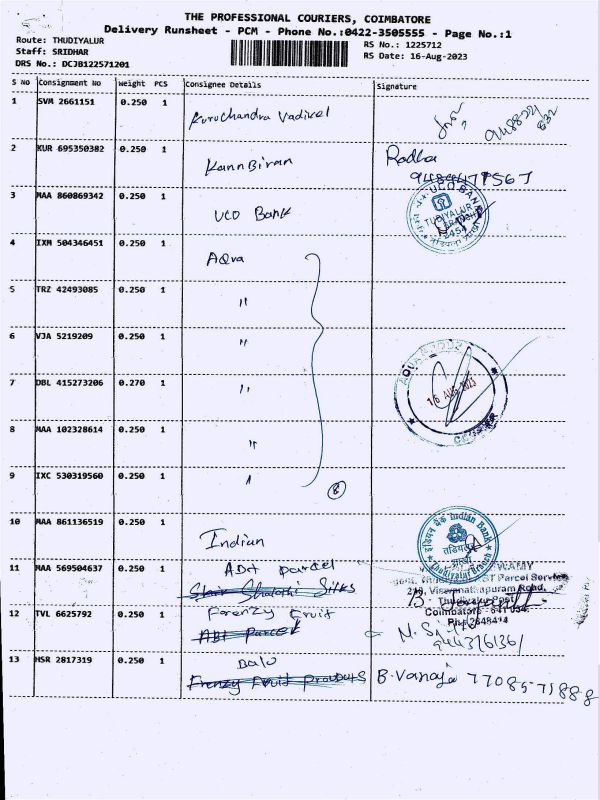 THE PROFESSIONAL COURIERS, COIMBATORE
Delivery Runsheet - PCM - Phone No.:0422-3505555 - Page No.:1
Route: THUDIYALUR
RS No.: 1225712
Staff: SRIDHAR
RS Date: 16-Aug-2023
DRS No.: DCJB122571201
S No Consignment No Weight PCS Consignee Details Signature
1 SVM 2661151 0.250 1
2 KUR 695350382 0.250 1 Kann Biran Radha
3 MAA 860869342 0.250 1 UCO Bank
UCO BANK
TUDIYALUR
4 IXM 504346451 0.250 1 Aqua
5 TRZ 42493085 0.250 1 "
6 VJA 5219209 0.250 1 "
7 DBL 415273206 0.270 1 "
16 AUG 2023
8 MAA 102328614 0.250 1 "
9 IXC 530319560 0.250 1 "
8
10 MAA 861136519 0.250 1 Indian
इंडियन बैंक Indian Bank
Thudiyalur Branch
11 MAA 569504637 0.250 1 ABT Parcel
Silks
Parcel Service
Viswanathapuram Road,
Thudiyalur Post
Coimbatore - 641 034.
Ph : 2648414
12 TVL 6625792 0.250 1 Farenzy Fruit
ABT Parcel
9443161361
13 HSR 2817319 0.250 1 Balu
Frenzy Fruit Products B. Vanaja 7708571888